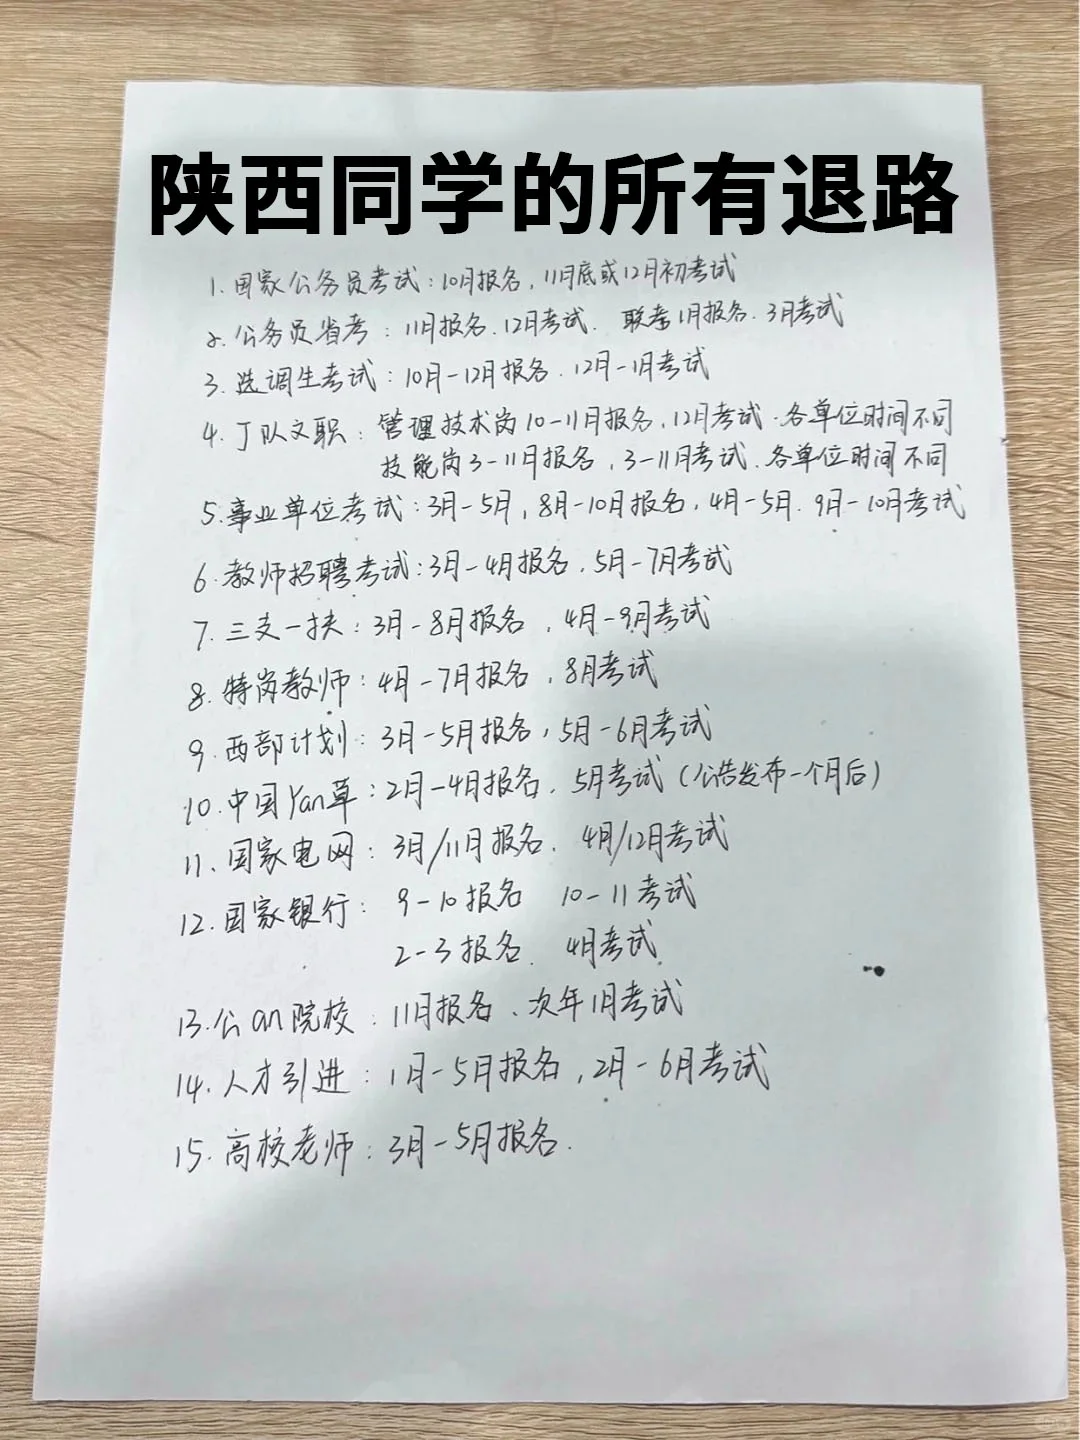 陕西同学的所有退路
1.国家公务员考试:10月报名,11月底或12月初考试
2.公务员省考:11月报名.12月考试. 联考1月报名.3月考试
3.选调生考试:10月-12月报名.12月-1月考试
4.丁队文职:管理技术岗10-11月报名,12月考试.各单位时间不同
技能岗3-11月报名,3-11月考试.各单位时间不同
5.事业单位考试:3月-5月,8月-10月报名,4月-5月.9月-10月考试
6.教师招聘考试:3月-4月报名.5月-7月考试
7.三支一扶:3月-8月报名,4月-9月考试
8.特岗教师:4月-7月报名,8月考试
9.西部计划:3月-5月报名,5月-6月考试
10.中国Yan草:2月-4月报名.5月考试(公告发布一个月后)
11.国家电网:3月/11月报名.4月/12月考试
12.国家银行:9-10报名 10-11考试
2-3报名.4月考试
13.公an院校:11月报名、次年1月考试
14.人才引进:1月-5月报名,2月-6月考试
15.高校老师:3月-5月报名.